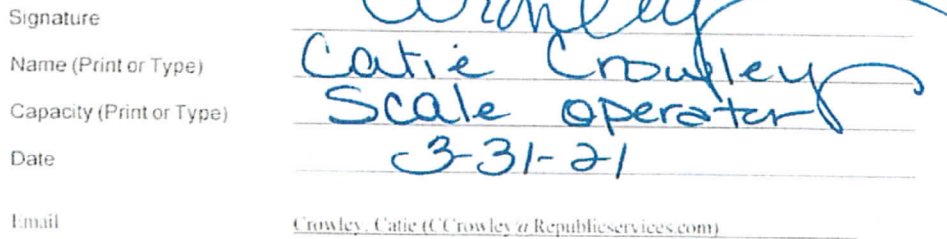 Signature Crowley
Name (Print or Type) Catie Crowley
Capacity (Print or Type) Scale operator
Date 3-31-21
Email Crowley, Catie (CCrowley@Republicservices.com)